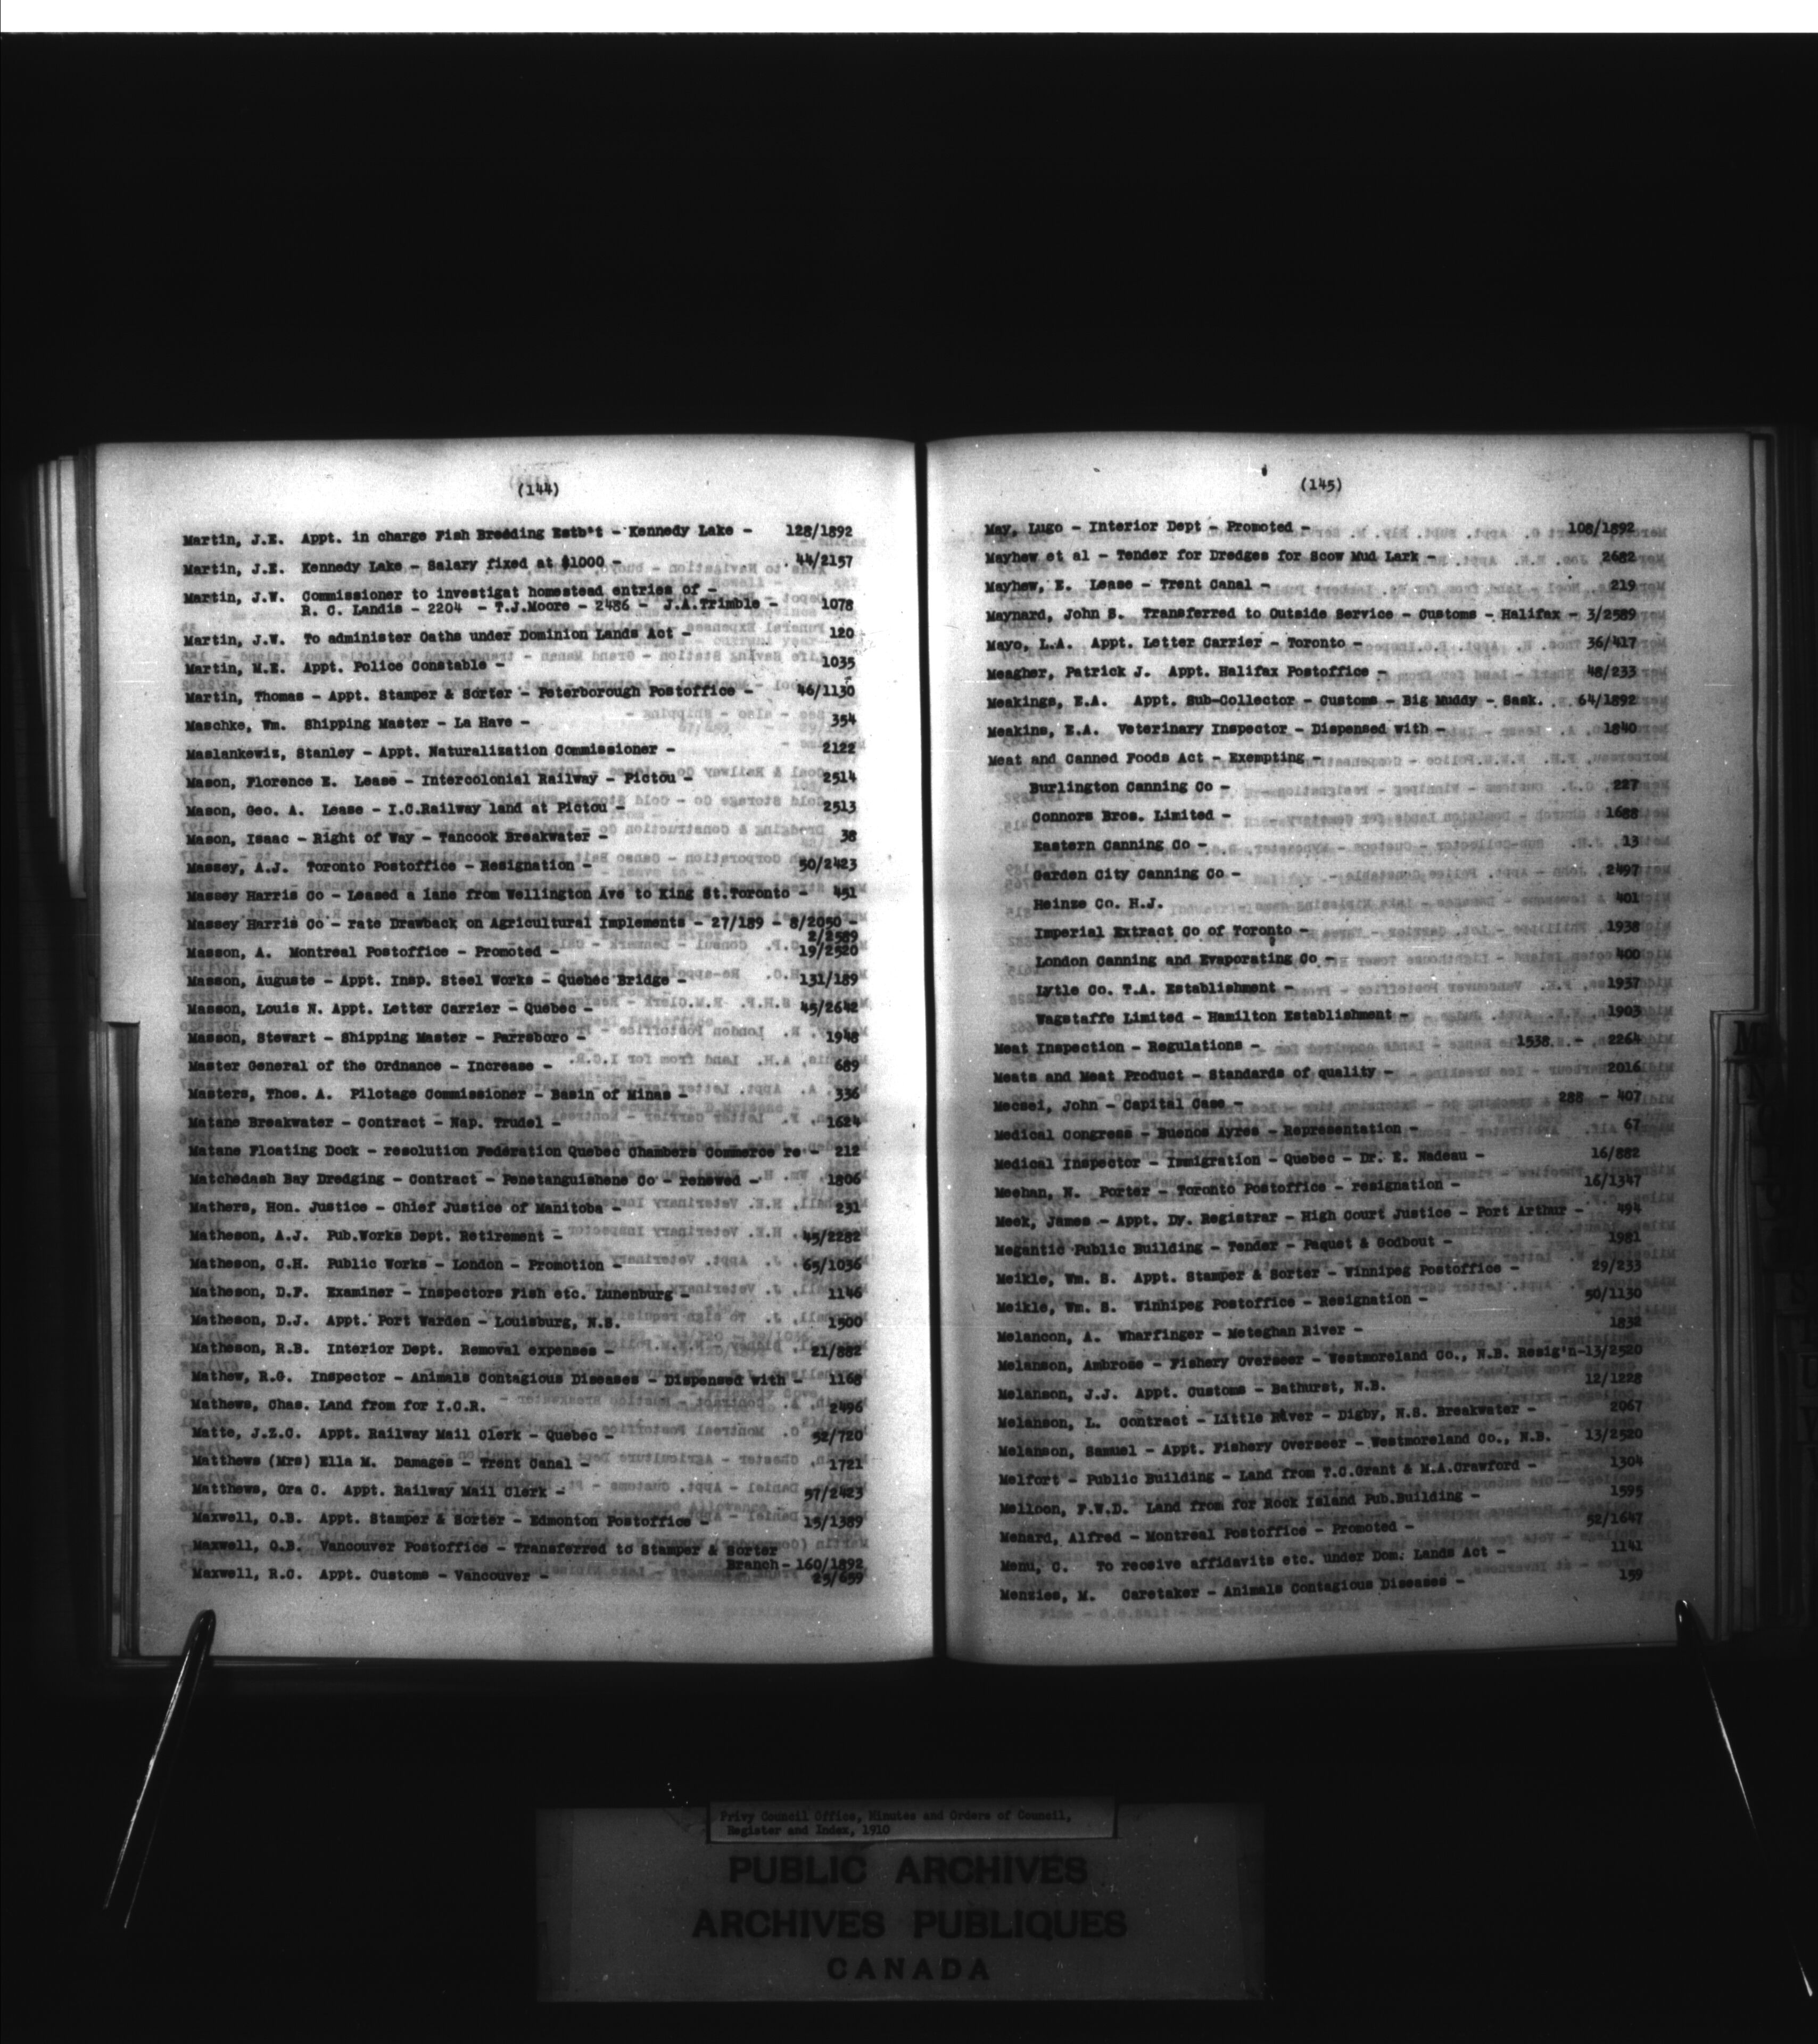 (144)
Martin, J.E. Appt. in charge Fish Breeding Estb't - Kennedy Lake - 128/1892
Martin, J.E. Kennedy Lake - Salary fixed at $1000 - 44/2157
Martin, J.W. Commissioner to investigat homestead entries of -
R. C. Landis - 2204 - T.J.Moore - 2486 - J.A.Trimble - 1078
Martin, J.W. To administer Oaths under Dominion Lands Act - 120
Martin, M.E. Appt. Police Constable - 1035
Martin, Thomas - Appt. Stamper & Sorter - Peterborough Postoffice - 46/1130
Maschke, Wm. Shipping Master - La Have - 354
Maslankewiz, Stanley - Appt. Naturalization Commissioner - 2122
Mason, Florence E. Lease - Intercolonial Railway - Pictou - 2514
Mason, Geo. A. Lease - I.C.Railway land at Pictou - 2513
Mason, Isaac - Right of Way - Tancook Breakwater - 38
Massey, A.J. Toronto Postoffice - Resignation - 50/2423
Massey Harris Co - Leased a lane from Wellington Ave to King St.Toronto - 451
Massey Harris Co - rate Drawback on Agricultural Implements - 27/189 - 8/2050 -
2/2589
Masson, A. Montreal Postoffice - Promoted - 19/2520
Masson, Auguste - Appt. Insp. Steel Works - Quebec Bridge - 131/189
Masson, Louis N. Appt. Letter Carrier - Quebec - 45/2642
Masson, Stewart - Shipping Master - Parrsboro - 1948
Master General of the Ordnance - Increase - 689
Masters, Thos. A. Pilotage Commissioner - Basin of Minas - 336
Matane Breakwater - Contract - Nap. Trudel - 1624
Matane Floating Dock - resolution Federation Quebec Chambers Commerce re - 212
Matchedash Bay Dredging - Contract - Penetanguishene Co - renewed - 1806
Mathers, Hon. Justice - Chief Justice of Manitoba - 231
Matheson, A.J. Pub.Works Dept. Retirement - 45/2282
Matheson, C.H. Public Works - London - Promotion - 65/1036
Matheson, D.F. Examiner - Inspectors Fish etc. Lunenburg - 1146
Matheson, D.J. Appt. Port Warden - Louisburg, N.S. 1500
Matheson, R.B. Interior Dept. Removal expenses - 21/882
Mathew, R.G. Inspector - Animals Contagious Diseases - Dispensed with - 1168
Mathews, Chas. Land from for I.C.R. 2496
Matte, J.Z.C. Appt. Railway Mail Clerk - Quebec - 52/720
Matthews (Mrs) Ella M. Damages - Trent Canal - 1721
Matthews, Ora C. Appt. Railway Mail Clerk - 57/2423
Maxwell, O.B. Appt. Stamper & Sorter - Edmonton Postoffice - 15/1389
Maxwell, O.B. Vancouver Postoffice - Transferred to Stamper & Sorter
Branch - 160/1892
Maxwell, R.C. Appt. Customs - Vancouver - 25/659
(145)
May, Lugo - Interior Dept - Promoted - 108/1892
Mayhew et al - Tender for Dredges for Scow Mud Lark - 2682
Mayhew, E. Lease - Trent Canal - 219
Maynard, John S. Transferred to Outside Service - Customs - Halifax - 3/2589
Mayo, L.A. Appt. Letter Carrier - Toronto - 36/417
Meagher, Patrick J. Appt. Halifax Postoffice - 48/233
Meakings, E.A. Appt. Sub-Collector - Customs - Big Muddy - Sask. 64/1892
Meakins, E.A. Veterinary Inspector - Dispensed with - 1840
Meat and Canned Foods Act - Exempting -
Burlington Canning Co - 227
Connors Bros. Limited - 1688
Eastern Canning Co - 13
Garden City Canning Co - 2497
Heinze Co. H.J. 401
Imperial Extract Co of Toronto - 1938
London Canning and Evaporating Co - 400
Lytle Co. T.A. Establishment - 1937
Wagstaffe Limited - Hamilton Establishment - 1903
Meat Inspection - Regulations - 1538 - 2264
Meats and Meat Product - Standards of quality - 2016
Mecsei, John - Capital Case - 288 - 407
Medical Congress - Buenos Ayres - Representation - 67
Medical Inspector - Immigration - Quebec - Dr. E. Nadeau - 16/882
Meehan, N. Porter - Toronto Postoffice - resignation - 16/1347
Meek, James - Appt. Dy. Registrar - High Court Justice - Port Arthur - 494
Megantic Public Building - Tender - Paquet & Godbout - 1981
Meikle, Wm. S. Appt. Stamper & Sorter - Winnipeg Postoffice - 29/233
Meikle, Wm. S. Winnipeg Postoffice - Resignation - 50/1130
Melancon, A. Wharfinger - Meteghan River - 1832
Melanson, Ambrose - Fishery Overseer - Westmoreland Co., N.B. Resig'n-13/2520
Melanson, J.J. Appt. Customs - Bathurst, N.B. 12/1228
Melanson, L. Contract - Little River - Digby, N.S. Breakwater - 2067
Melanson, Samuel - Appt. Fishery Overseer - Westmoreland Co., N.B. 13/2520
Melfort - Public Building - Land from T.C.Grant & M.A.Crawford - 1304
Melloon, F.W.D. Land from for Rock Island Pub.Building - 1595
Menard, Alfred - Montreal Postoffice - Promoted - 52/1647
Menu, C. To receive affidavits etc. under Dom. Lands Act - 1141
Menzies, M. Caretaker - Animals Contagious Diseases - 159
Privy Council Office, Minutes and Orders of Council,
Register and Index, 1910
PUBLIC ARCHIVES
ARCHIVES PUBLIQUES
CANADA